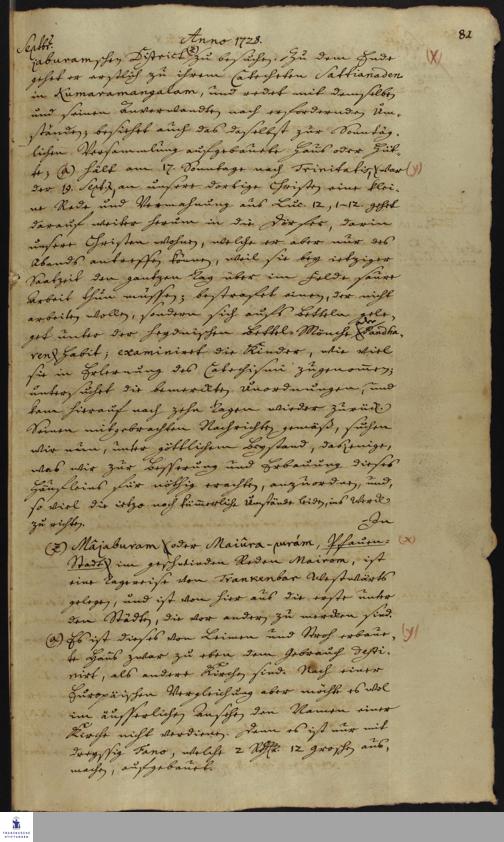 Anno 1728.
82
Septbr.
Zaburamschen District (z) zu besuchen. Zu dem Ende
(x)
gehet er erstlich zu ihrem Catecheten Sattianaden
in Kumaramangalam, und redet mit demselben
und seinen Anverwandten nach erfordernden Um-
ständen; besiehet auch das daselbst zur Sonntäg-
lichen Versammlung aufgebauete Haus oder Hüt-
te; (a) hält am 17. Sonntage nach Trinitatis, war
(y)
der 19. Sept. an unsere dortige Christen eine klei-
ne Rede und Vermahnung aus Luc. 12, 1-12. gehet
darauf weiter herum in die Dörfer, darin
unsere Christen wohnen, welche er aber nur des
Abends antreffen können, weil sie bey ietziger
Saatzeit den gantzen Tag über im Felde saure
Arbeit thun müssen; bestrafet einen, der nicht
arbeiten wollen, sondern sich aufs Betteln gele-
get unter der heydnischen Bettel-Mönche oder Panda-
ren Habit; examiniret die Kinder, wie viel
sie in Erlernung des Catechismi zugenommen;
untersuchet die bemerckten Unordnungen, und
kam hierauf nach zehn Tagen wieder zurück.
Seinen mitgebrachten Nachrichten gemäß, suchen
wir nun, unter göttlichem Beystand, dasjenige,
was wir zur Besserung und Erbauung dieses
Häufleins für nöthig erachten, anzuordnen, und,
so viel die ietzo noch kümmerliche Umstände leiden, ins Werck
zu richten.
In
(z) Májaburam oder Maiûra-purám, Pfauen-
(x)
Stadt im geschwinden Reden Mairom, ist
eine Tagereise von Trankenbar Westwärts
gelegen, und ist von hier aus die erste unter
den Städten, die vor andern zu mercken sind.
(a) Es ist dieses von Leimen und Stroh erbaue-
(y)
te Haus zwar zu eben dem Gebrauch desti-
nirt, als andere Kirchen sind. Nach einer
Europäischen Vergleichung aber möchte es wol
im äusserlichen Ansehen den Namen einer
Kirche nicht verdienen. Denn es ist nur mit
dreyssig Fano, welche 2 Rthlr. 12 Groschen aus-
machen, aufgebauet.
FRANCKESCHE
STIFTUNGEN